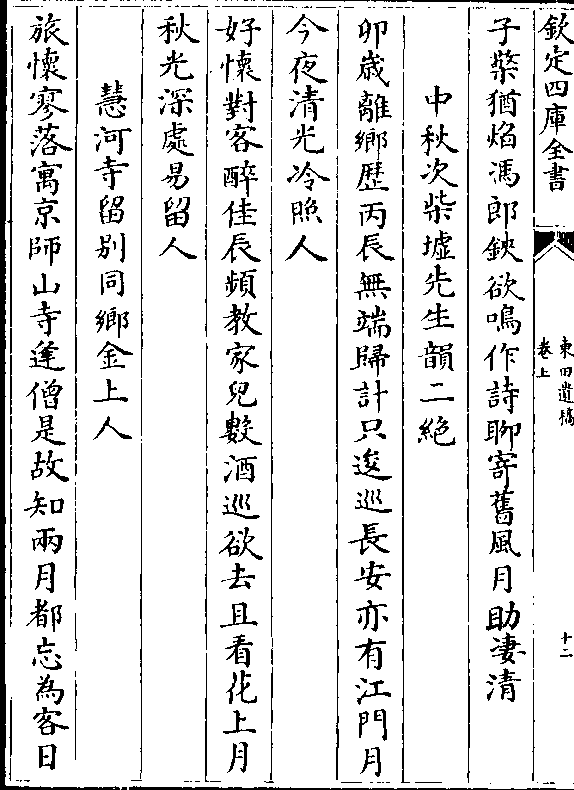 欽定四庫全書
東田遺稿
卷上
十二
子檠猶焰馮郎鋏欲鳴作詩聊寄舊風月助凄清
中秋次柴墟先生韻二絶
卯歲離鄉歷丙辰無端歸計只逡巡長安亦有江門月
今夜清光冷照人
好懷對客醉佳辰頻教家兒數酒巡欲去且看花上月
秋光深處易留人
慧河寺留别同鄉金上人
旅懷寥落寓京師山寺逢僧是故知兩月都忘為客日